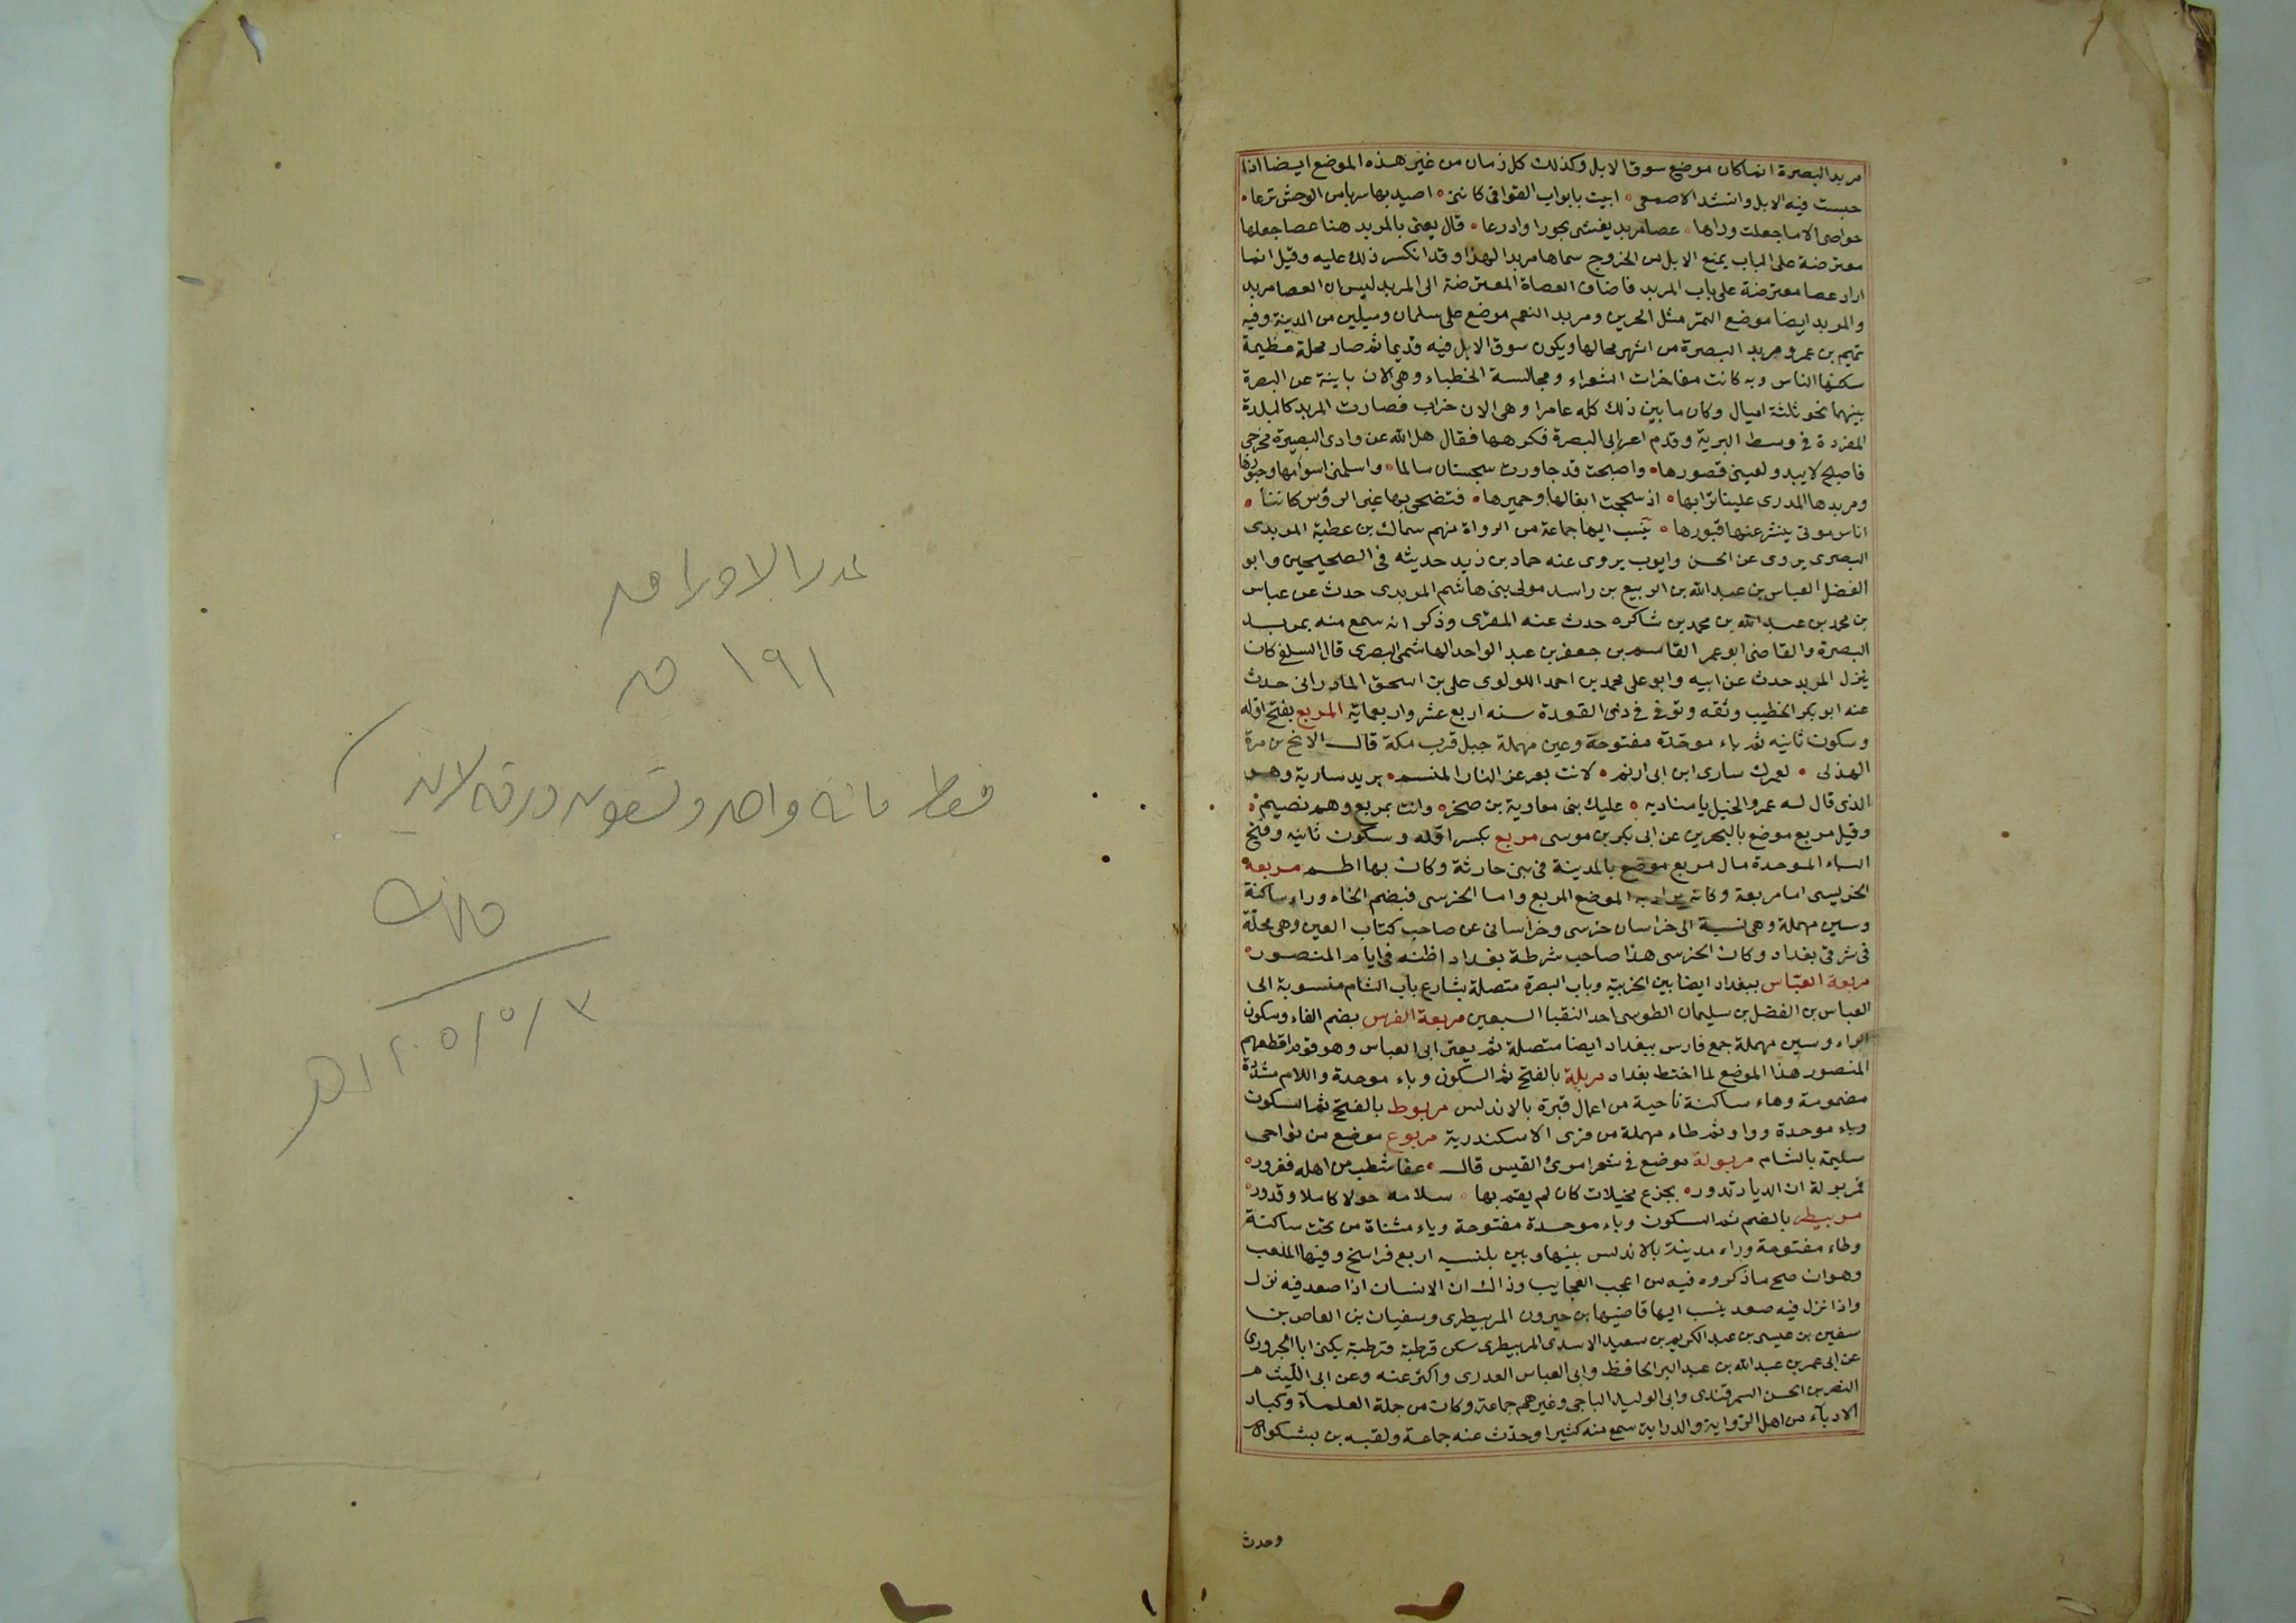 مربد البصرة انما كان موضع سوق الابل وكذلك كل زمان من غير هذه الموضع ايضا اذا
حبست فيه الابل وانشد الاصمعى ٥ ابيت بابواب القوافى كانى ٥ اصيد بها سربا من الوحش نزعا ٥
حواصى الا ما جعلت وراها ٥ عصا مربد يغشى بحورا وادرعا ٥ قال يعنى بالمربد هنا عصا جعلها
معترضة على الباب يمنع الابل من الخروج سماها مربدا لهذا وقد انكسر ذلك عليه وقيل انما
اراد عصا معترضة على باب المربد فاضاف العصاة المعترضة الى المربد ليس ان العصا مربد
والمربد ايضا موضع التمر مثل الجرين ومربد النعم موضع على سلمان وميلين من المدينة وفيه
تميم بن عمر ومربد البصرة من اشهر محالها ويكون سوق الابل فيه قديما ثم صار محلة عظيمة
سكنها الناس وبه كانت مفاخرات الشعراء ومجالسة الخطباء وهى الان باينة عن البصرة
بينهما نحو ثلثة اميال وكان ما بين ذلك كله عامرا وهى الان خراب فصارت المربد كالبلدة
المفردة فى وسط البرية وقدم اعرابى البصرة فكرهها فقال هل الله عن وادى البصيرة مخرجى
فاصبح لا يبدو لعينى قصورها ٥ واصبحت قد جاورت سجستان سالما ٥ واسلمنى اسواقها وجسورها
ومربدها المدرى علينا ترابها ٥ اذ سحجت ابغالها وحميرها ٥ فتضحى بها غبر الرؤس كاننا ٥
اناس موتى ينشر عنها قبورها ٥ ينسب اليها جماعة من الرواة منهم سماك بن عطية المربدى
البصرى يروى عن الحسن وايوب يروى عنه حماد بن زيد حديثه فى الصحيحين وابو
الفضل العباس بن عبد الله بن الربيع بن راسد مولى بنى هاشم المربدى حدث عن عباس
بن محمد بن عبد الله بن محمد بن شاكره حدث عنه المقرى وذكر انه سمع منه بمربد
البصرة والقاضى ابو عمر القاسم بن جعفر بن عبد الواحد الهاشمى البصرى قال السلفى كان
ينزل المربد حدث عن ابيه وابو على محمد بن احمد اللولوى على بن اسحق المادرانى حدث
عنه ابو بكر الخطيب وثقه وتوفى فى ذى القعدة سنه اربع عشر واربعماية المربع بفتح اوله
وسكون ثانيه ثم باء موحدة مفتوحة وعين مهملة جبل قرب مكة قال الابح بن مرة
الهذلى ٥ لعمرك سارى ابن ابى ارنم ٥ لانت بعرعر النار المنسم ٥ يريد سارية وهو
الذى قال له عمر والخيل يا مناديه ٥ عليك بنى معاوية بن صخره وانت بمربع وهم نصيم ٥
وقيل مربع موضع بالبحرين عن ابى بكر بن موسى مربع بكسر اوله وسكون ثانيه وفتح
الباء الموحدة مال مربع موضع بالمدينة فى بنى حارثة وكان بها اطم مربعة
الخريسى اما مربعة وكانه يراد به الموضع المربع واما الخرسى فبضم الخاء وراء ساكنة
وسين مهملة وهى نسبة الى خراسان خرسى وخراسانى عن صاحب كتاب العين وهى محلّة
فى شرقى بغداد وكان الخرسى هذا صاحب شرطة بغداد اظنه فى ايام المنصور ٥
مربعة العبّاس ببغداد ايضا بين الحربية وباب البصرة متصلة بشارع باب الشام منسوبة الى
العباس بن الفضل بن سليمان الطوسى احد النقبا السبعين مربعة الفرس بضم الفاء وسكون
الراء وسين مهملة جمع فارس ببغداد ايضا متصلة ثم يعنى ابى العباس وهو قوم اقطعهم
المنصور هذا الموضع لما اختط بغداد مربلة بالفتح ثم السكون وباء موحدة واللام مشدّدة
مضمومة وهاء ساكنة ناحية من اعمال قبرة بالاندلس مربوط بالفتح ثم السكون
وباء موحدة وواو ثم طاء مهملة من قرى الاسكندرية مربوع موضع من نواحى
سليمة بالشام مربولة موضع فى شعر امرئ القيس قال ٥ عفا شطب من اهله فغرور ٥
فمربولة ان الديار تدور ٥ بجزع مخيلات كان لم يقم بها ٥ سلامه حولا كاملا وقدور ٥
مربيطر بالضم ثم السكون وباء موحدة مفتوحة وياء مثناة من تحت ساكنة
وطاء مفتوحة وراء مدينة بالاندلس بينها وبين بلنسيه اربع فراسخ وفيها الملعب
وهو ان صح ما ذكروه فيه من اعجب العجايب وذاك ان الانسان اذا صعد فيه نزل
واذا نزل فيه صعد ينسب اليها قاضيها بن خيرون المربيطرى وسفيان بن العاص بن
سفين بن عيسى بن عبد الكريم بن سعيد الاسدى المربيطرى سكن قرطبة قرطبة يكنى ابا الجرورى
عن ابى عمر بن عبد الله بن عبد البر الحافظ وابى العباس العدرى واكثر عنه وعن ابى الليث
النصر بن الحسن السمرقندى وابى الوليد الباجى وغيرهم جماعة وكان من جلة العلماء وكبار
الادبآء من اهل الرواية والدراية سمع منه كثيرا وحدّث عنه جماعة ولقبه بن بشكوال
وحدث
عدد الاوراق
١٩١ ق
فقط مائة واحد وتسعون ورقة لاغير
١٤٠٥/٥/٣هـ